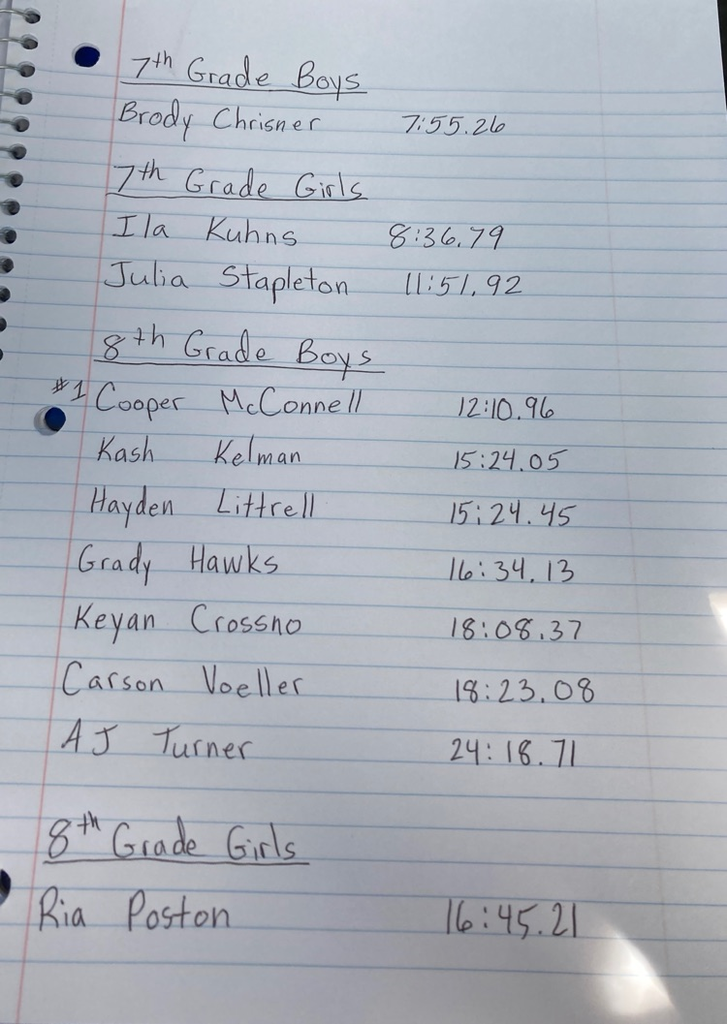 7th Grade Boys
Brody Chrisner 7:55.26
7th Grade Girls
Ila Kuhns 8:36.79
Julia Stapleton 11:51.92
8th Grade Boys
#1 Cooper McConnell 12:10.96
Kash Kelman 15:24.05
Hayden Littrell 15:24.45
Grady Hawks 16:34.13
Keyan Crossno 18:08.37
Carson Voeller 18:23.08
AJ Turner 24:18.71
8th Grade Girls
Ria Poston 16:45.21